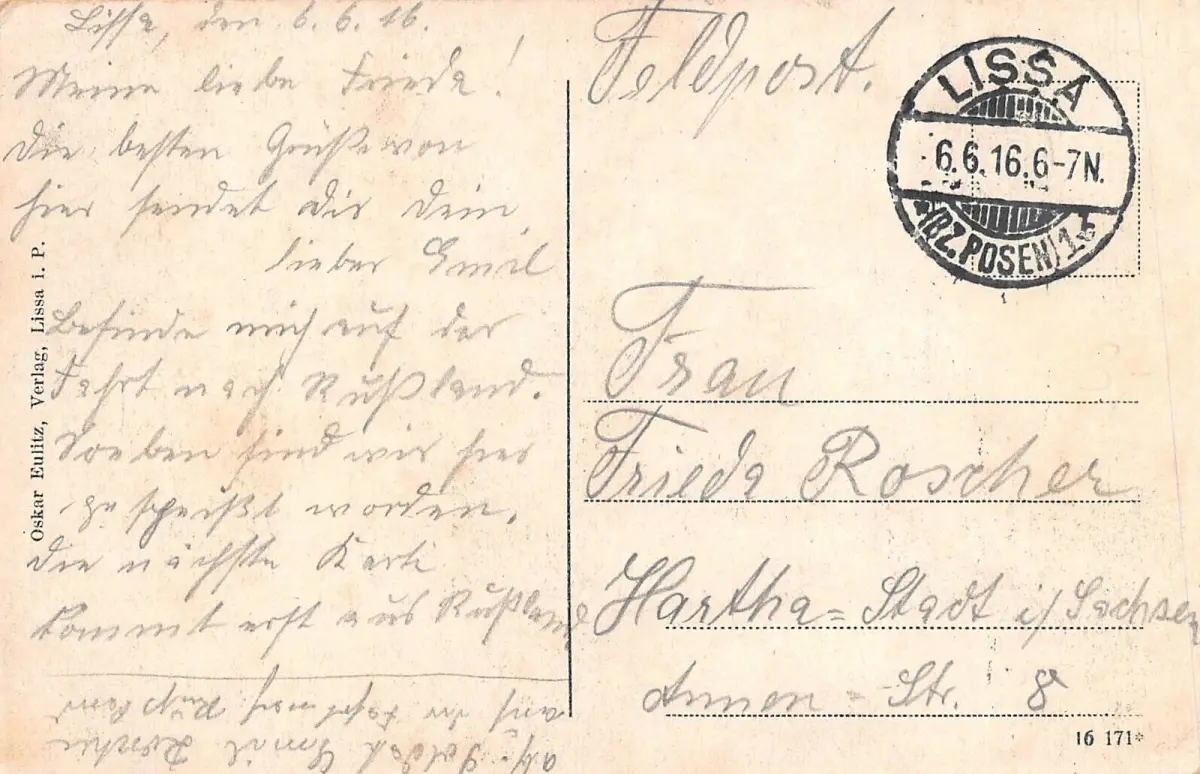 Lissa, den 6. 6. 16.
Meine liebe Frieda!
Die besten Grüße von
hier sendet Dir Dein
lieber Emil
Befinde mich auf der
Fahrt nach Rußland.
Soeben sind wir hier
gespeißt worden.
Die nächste Karte
kommt erst aus Rußland
Abs. Soldat Emil Roscher
auf der Fahrt nach Rußland
Oskar Eulitz, Verlag, Lissa i. P.
Feldpost.
LISSA
6.6.16.6-7N.
*(BZ.POSEN)1*
Frau
Frieda Roscher
Hartha=Stadt i/Sachsen
Annen=Str. 8
16 171*